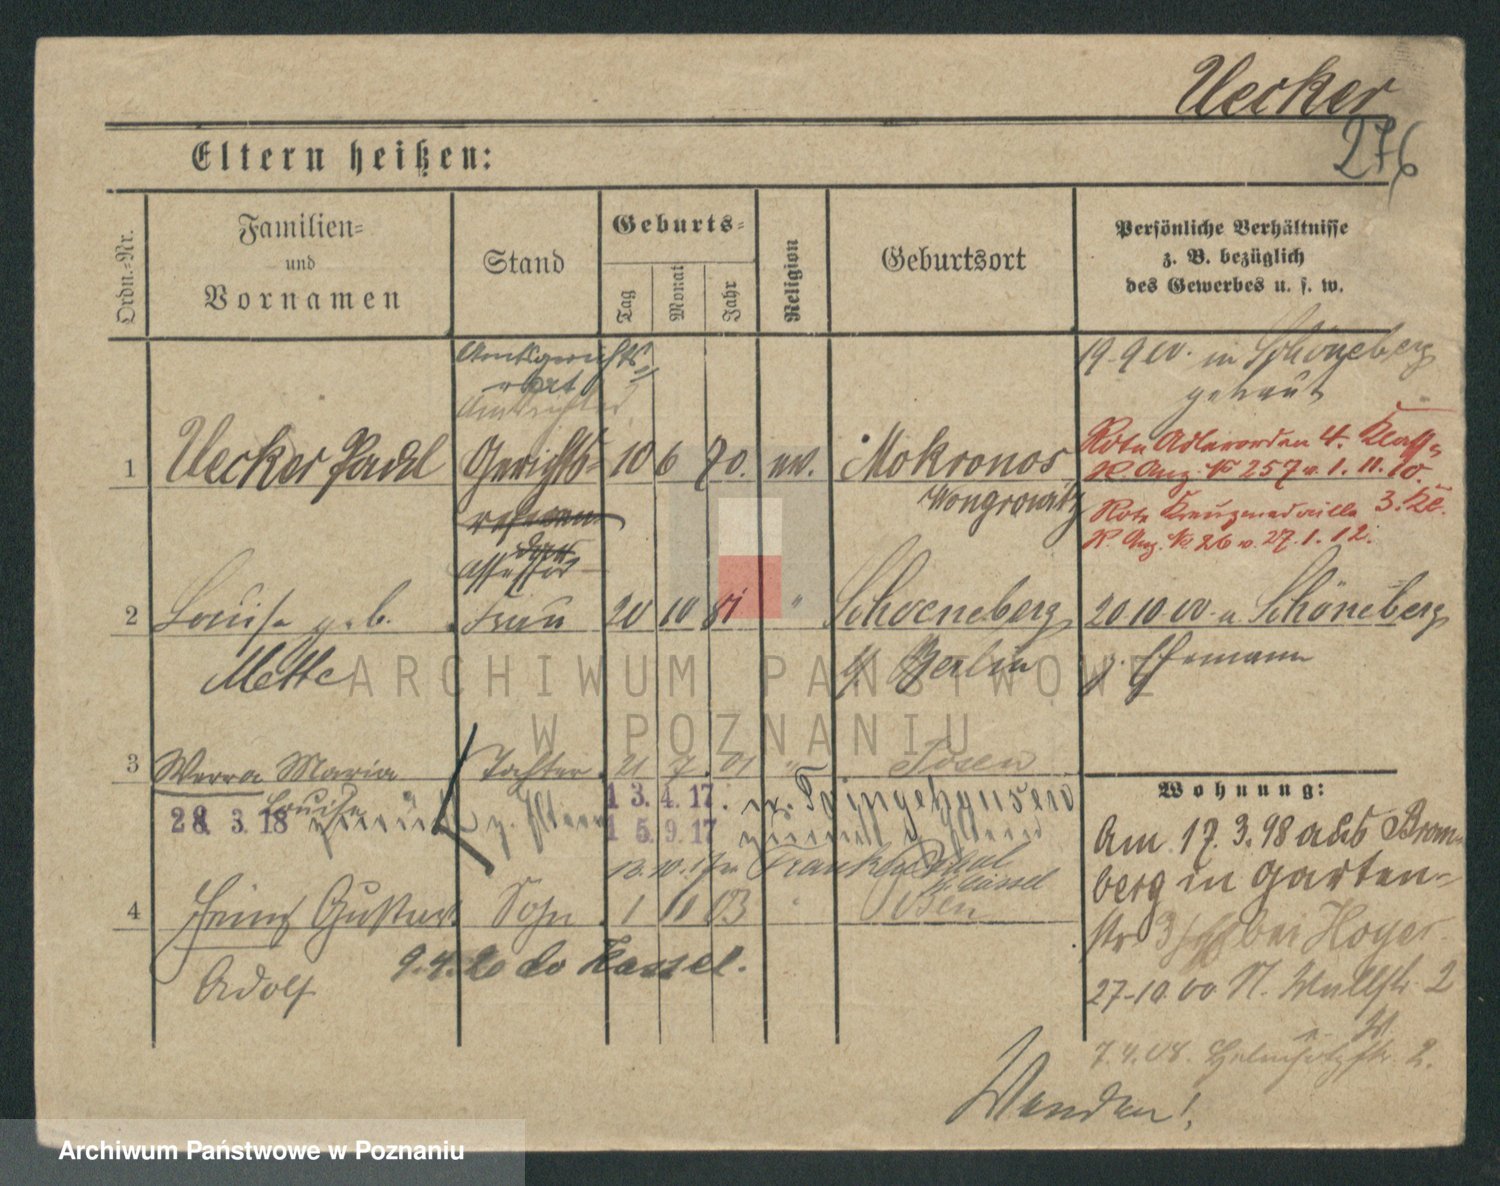 Uecker
276
Eltern heißen:
Ordn.-Nr.
Familien-
und
Vornamen
Stand
Geburts-
Tag
Monat
Jahr
Religion
Geburtsort
Persönliche Verhältnisse
z. B. bezüglich
des Gewerbes u. s. w.
Amtsgerichts
rat
Amtsrichter
19.9.00. in Schöneberg
getraut
1 Uecker Paul Gerichts- 10 6 70. ev. Mokronos
Wongrowitz
Rote Adlerorden 4. Klasse
R. Anz. No 257 v. 1. 11. 10.
Rote Kreuzmedaille 3. Kl.
R. Anz. No. 26 v. 27. 1. 12.
Assessor
2 Louise geb. Frau 20 10 81 " Schoeneberg
Mette
b/ Berlin
20.10.00 v. Schöneberg
z. Ehemann
3 Werra Maria Tochter 21 7. 01 " Posen
Louise
28. 3. 18
z. Eltern
13.4.17.
15.9.17
4 Heinz Gustav Sohn 1 11 03 " Posen
Adolf
9.4.20 do Kassel.
Wohnung:
Am 17.3.98 aus Brom-
berg in Garten-
str 3 bei Hoyer.
27.10.00 N. Wallstr. 2
7.4.08. Helmholtzstr. 2.
Wenden!
ARCHIWUM PAŃSTWOWE
W POZNANIU
Archiwum Państwowe w Poznaniu